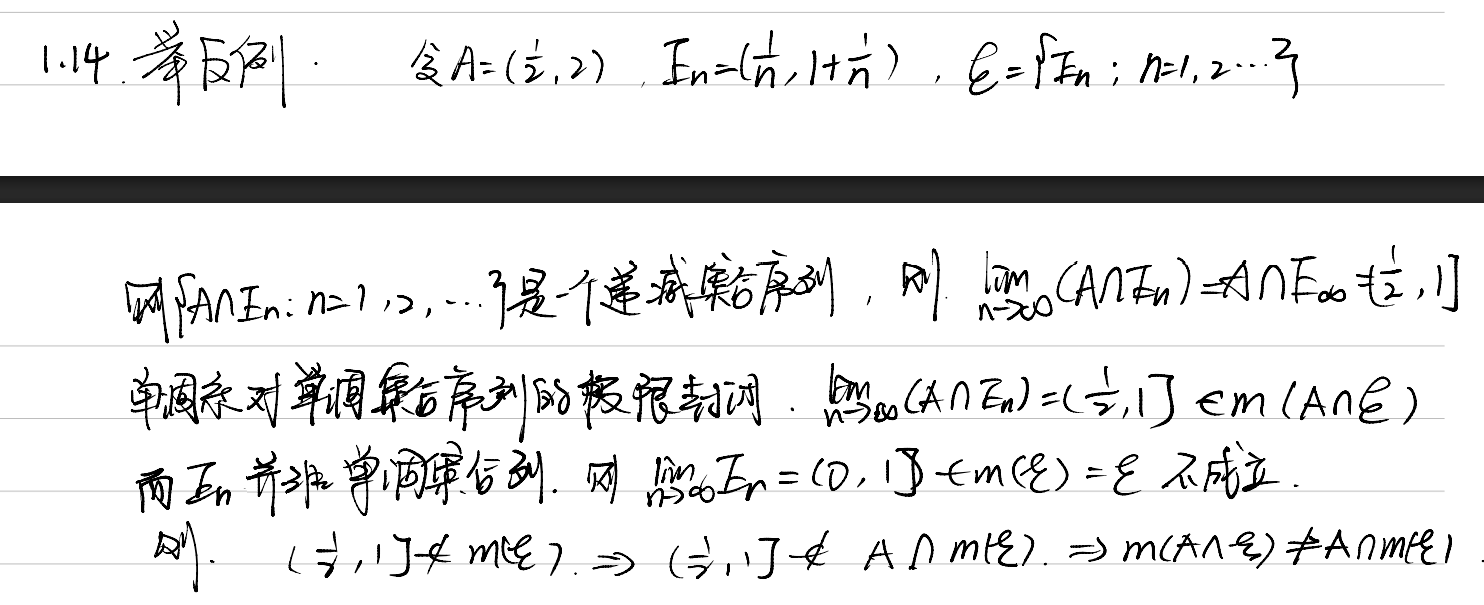 1.14. 举反例. 令A=(1/2, 2), En=(1/n, 1+1/n), ℰ={En; n=1,2…}
则{A∩En: n=1,2,…}是一个递减集合序列, 则 lim n→∞ (A∩En)=A∩E∞=(1/2, 1]
单调系对单调集合序列的极限封闭. lim n→∞ (A∩En)=(1/2, 1] ∈ m(A∩ℰ)
而En并非单调集合列. 则 lim n→∞ En=(0, 1] ∈ m(ℰ)=ℰ 不成立.
则. (1/2, 1] ∉ m(ℰ). ⇒ (1/2, 1] ∉ A∩m(ℰ). ⇒ m(A∩ℰ)≠A∩m(ℰ).